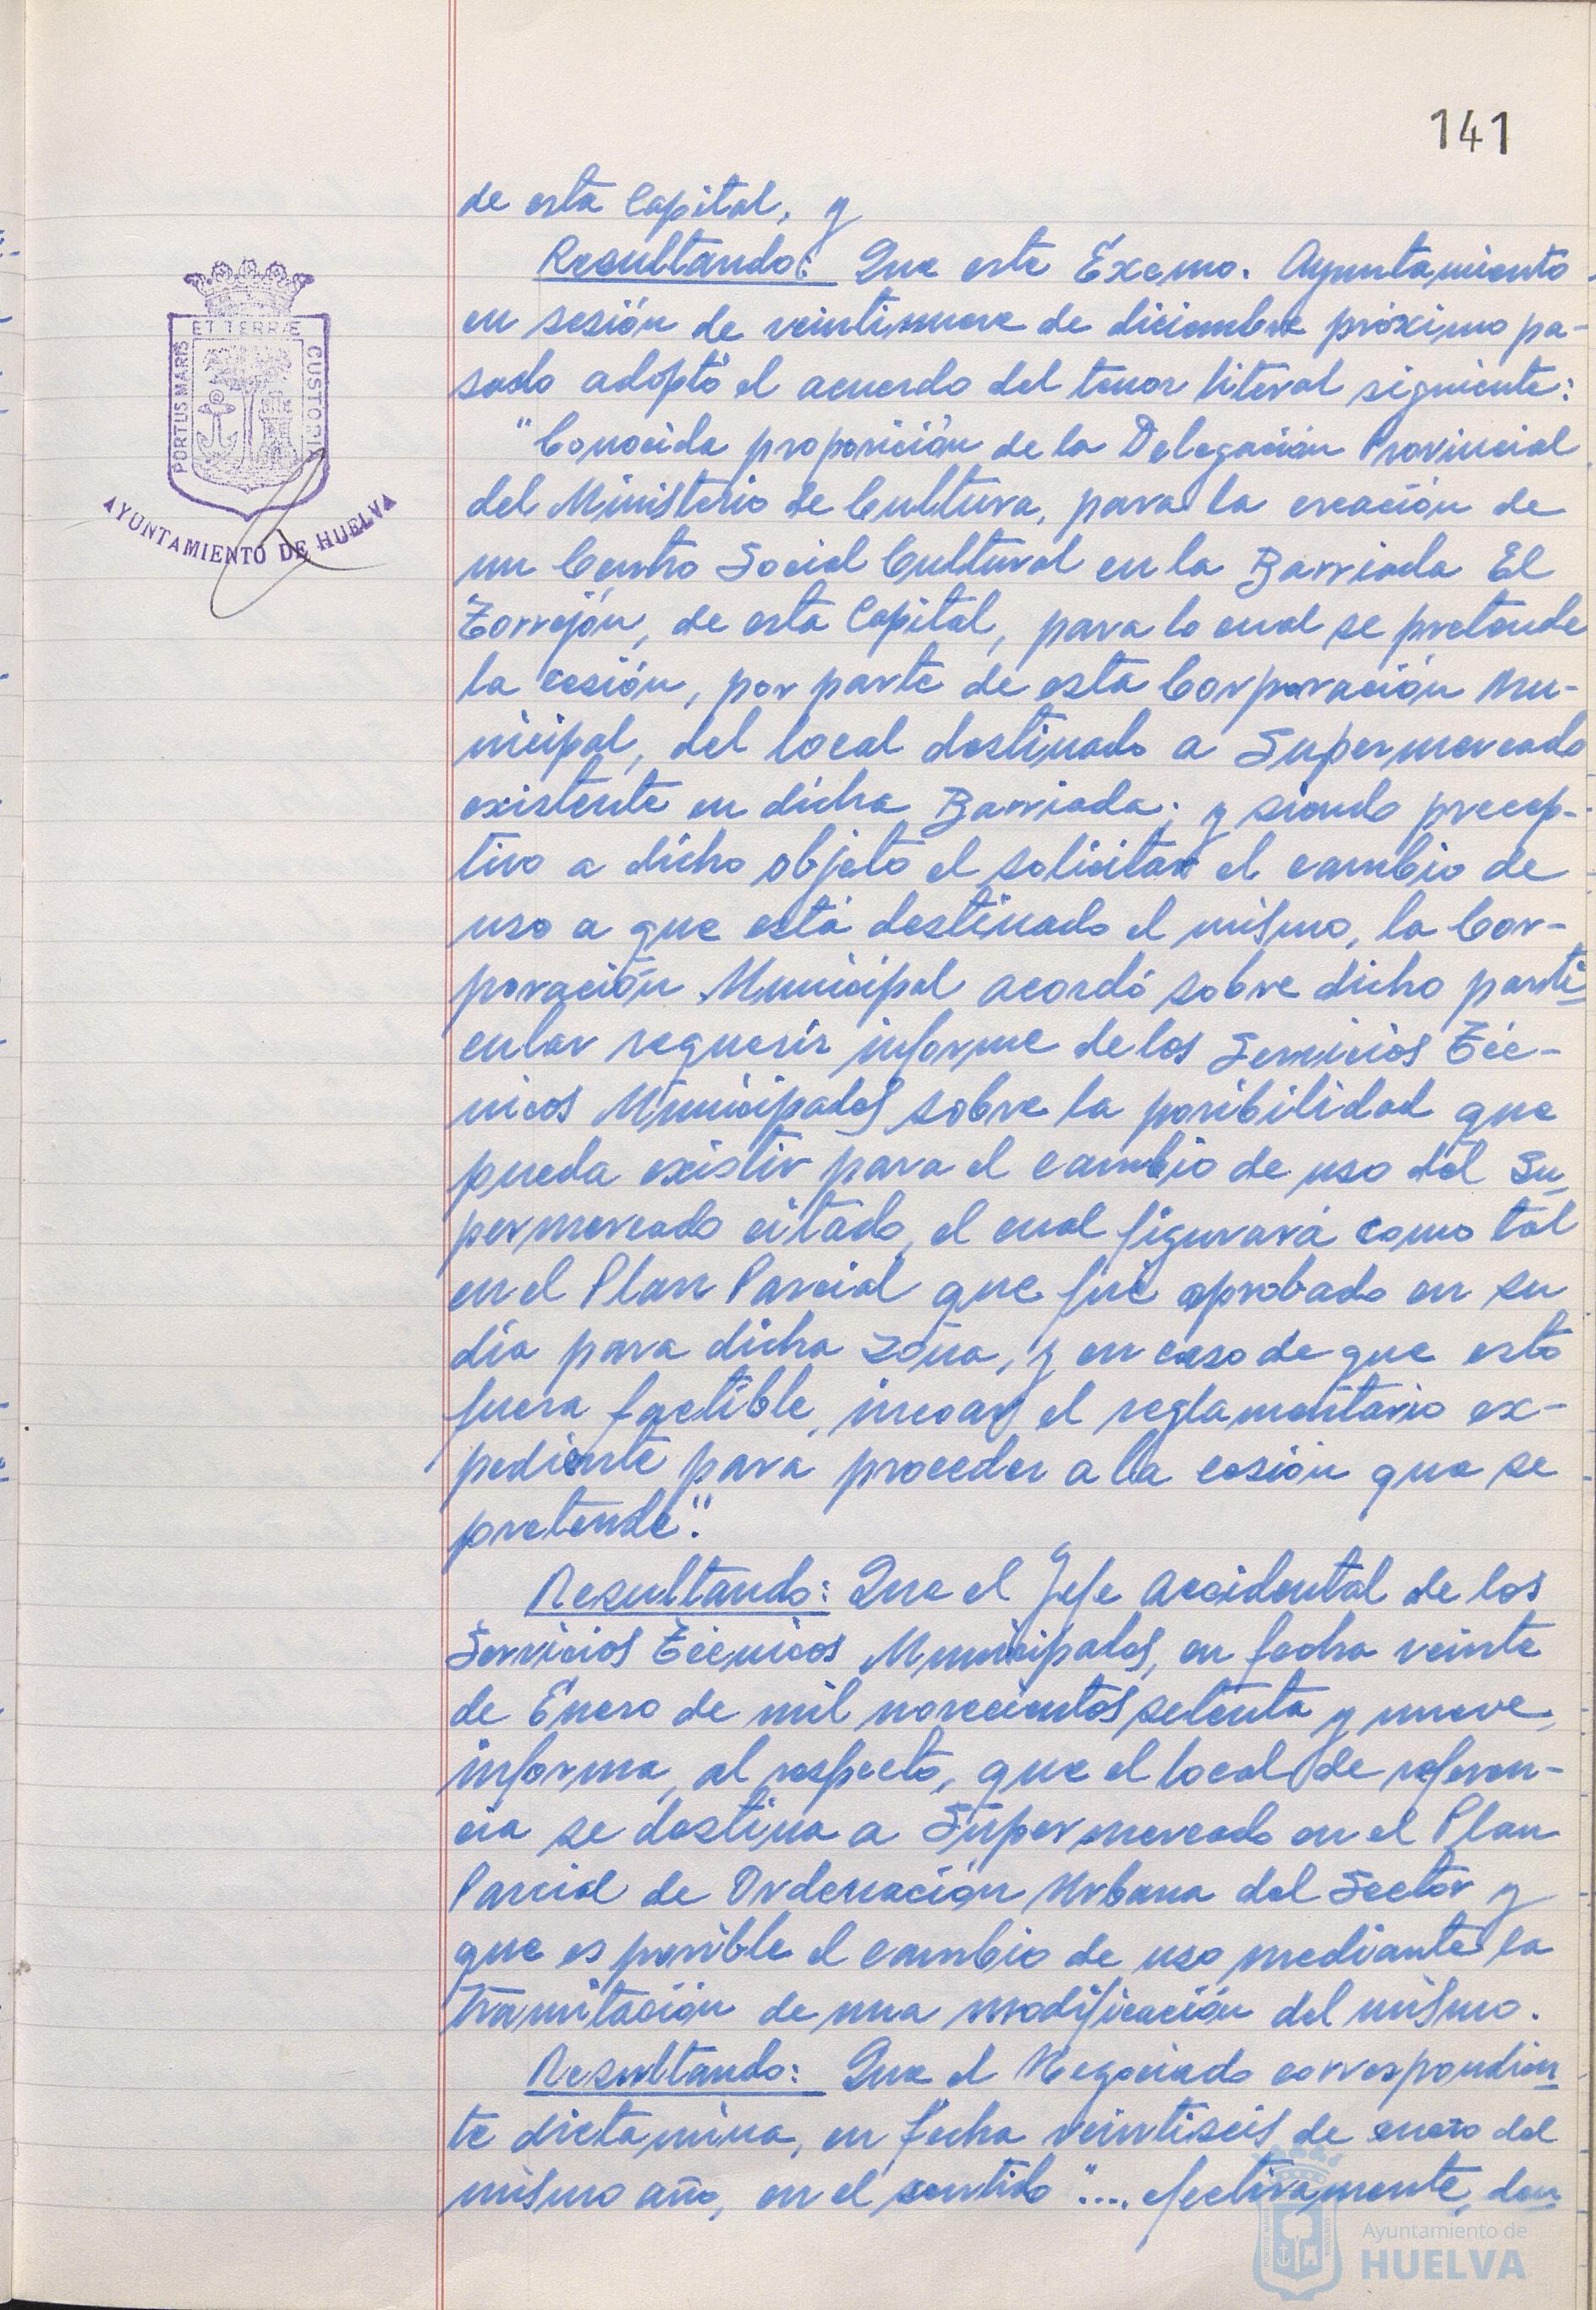 141
de esta Capital, y
Resultando: Que este Excmo. Ayuntamiento
en sesión de veintinueve de diciembre próximo pa-
sado adoptó el acuerdo del tenor literal siguiente:
"Conocida proposición de la Delegación Provincial
del Ministerio de Cultura, para la creación de
un Centro Social Cultural en la Barriada El
Torrejón, de esta Capital, para lo cual se pretende
la cesión, por parte de esta Corporación Mu-
nicipal, del local destinado a Supermercado
existente en dicha Barriada; y siendo precep-
tivo a dicho objeto el solicitar el cambio de
uso a que está destinado el mismo, la Cor-
poración Municipal acordó sobre dicho parti
cular requerir informe de los Servicios Téc-
nicos Municipales sobre la posibilidad que
pueda existir para el cambio de uso del Su
permercado citado, el cual figurará como tal
en el Plan Parcial que fué aprobado en su
día para dicha zona, y en caso de que esto
fuera factible, incoar el reglamentario ex-
pediente para proceder a la cesión que se
pretende".
Resultando: Que el Jefe Accidental de los
Servicios Técnicos Municipales, en fecha veinte
de Enero de mil novecientos setenta y nueve,
informa, al respecto, que el local de referen-
cia se destina a Supermercado en el Plan
Parcial de Ordenación Urbana del Sector y
que es posible el cambio de uso mediante la
tramitación de una modificación del mismo.
Resultando: Que el Negociado correspondien
te dictamina, en fecha veintiseis de enero del
mismo año, en el sentido ".... efectivamente, den
PORTUS MARIS ET TERRÆ CUSTODIA
AYUNTAMIENTO DE HUELVA
Ayuntamiento de
HUELVA